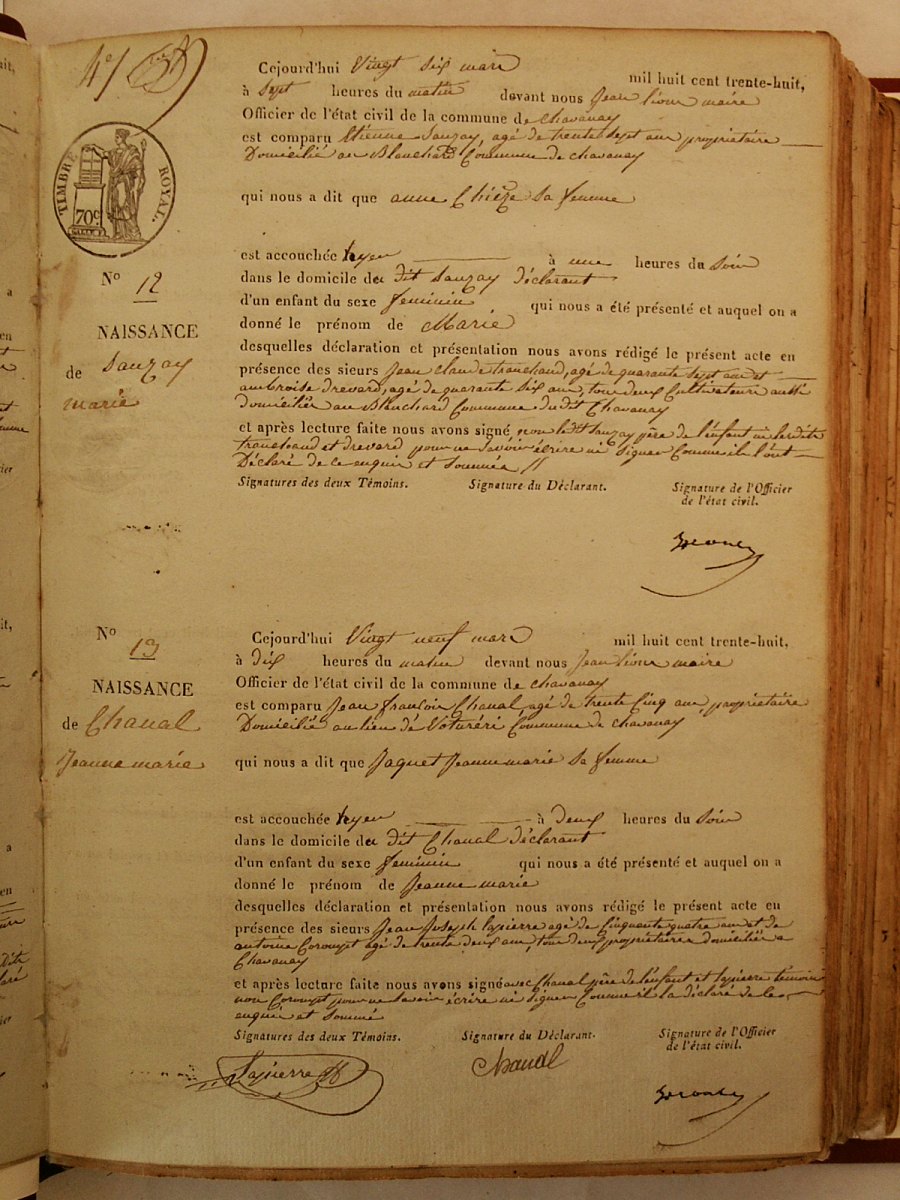 4e/
TIMBRE ROYAL.
70c
No 12
NAISSANCE
de Sauzay
marie
Cejourd'hui Vingt six mars mil huit cent trente-huit,
à sept heures du matin devant nous Jean lioux maire
Officier de l'état civil de la commune de Chavanay
est comparu Etienne Sauzay, agé de trente sept ans propriétaire
Domicilié au Blanchard Commune de chavanay
qui nous a dit que anne Chièze sa femme
est accouchée hyer à une heures du soir
dans le domicile du dit Sauzay déclarant
d'un enfant du sexe feminin qui nous a été présenté et auquel on a
donné le prénom de Marie
desquelles déclaration et présentation nous avons rédigé le présent acte en
présence des sieurs Jean Claude tranchand, agé de quarante sept ans et
ambroise drevard, agé de quarante six ans, tous deux Cultivateurs aussi
domiciliés au Blanchard Commune du dit Chavanay
et après lecture faite nous avons signé non ledit Sauzay père de l'enfant ni lesdits
tranchand et drevard pour ne savoir écrire ni signer Comme ils l'ont
Déclaré de ce enquis et sommés //
Signatures des deux Témoins. Signature du Déclarant. Signature de l'Officier
de l'état civil.
No 13
NAISSANCE
de Chaual
Jeanne marie
Cejourd'hui Vingt neuf mars mil huit cent trente-huit,
à dix heures du matin devant nous Jean lioux maire
Officier de l'état civil de la commune de chavanay
est comparu Jean françois Chaual agé de trente Cinq ans, propriétaire
Domicilié au lieu de Voturéri Commune de chavanay
qui nous a dit que Jaquet Jeanne marie sa femme
est accouchée hyer à deux heures du soir
dans le domicile du dit Chaual déclarant
d'un enfant du sexe feminin qui nous a été présenté et auquel on a
donné le prénom de Jeanne marie
desquelles déclaration et présentation nous avons rédigé le présent acte en
présence des sieurs Jean Joseph lapierre agé de Cinquante quatre ans et de
antoine Corompt agé de trente deux ans, tous deux propriétaires domiciliés a
Chavanay
et après lecture faite nous avons signé avec Chaual père de l'enfant et lapierre témoin
non Corompt pour ne savoir écrire ni signer Comme il la déclaré de ce
enquis et sommé
Signatures des deux Témoins. Signature du Déclarant. Signature de l'Officier
de l'état civil.
Lapierre Chaual